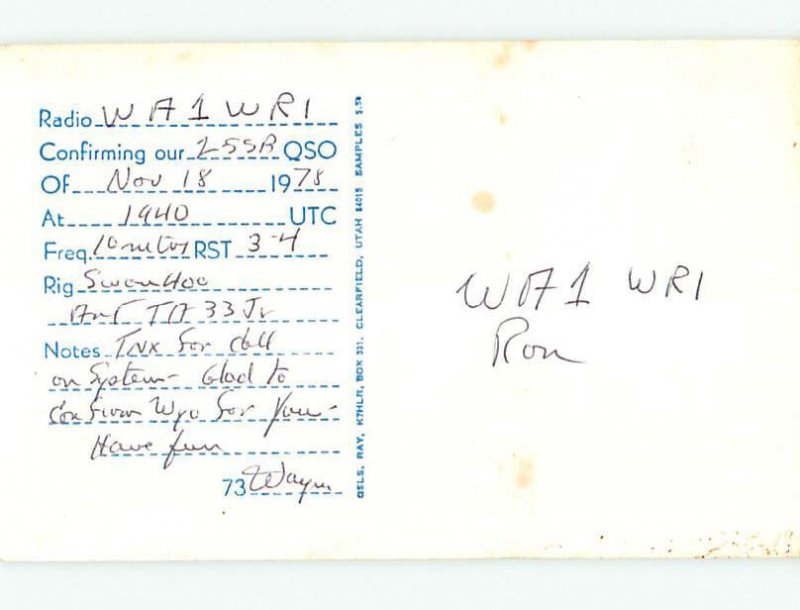 Radio WA1WRI
Confirming our 2SSB QSO
Of Nov 18 1978
At 1940 UTC
Freq. 10 meters RST 3-4
Rig Swan 400
Ant TA 33 Jr
Notes TNX for call
on System- Glad to
Confirm Wyo for You-
Have fun
73 Wayne
QSLS, RAY, K7HLR, BOX 331, CLEARFIELD, UTAH 84015 SAMPLES $.50
WA1 WRI
Ron